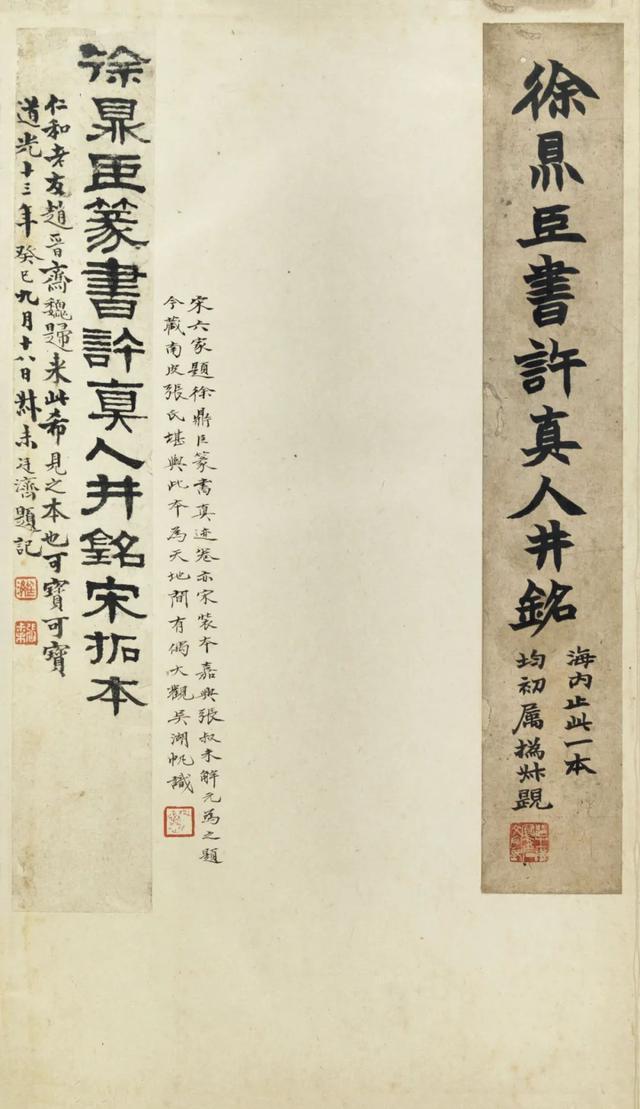 徐鼎臣書許真人井銘
海内止此一本
均初属撝叔題
宋六家題徐鼎臣篆書真迹卷亦宋裝本嘉興張叔未解元為之題
今藏南皮張氏堪與此本為天地間有偶大觀吳湖帆識
徐鼎臣篆書許真人井銘宋拓本
仁和老友趙晉齋魏歸来此希見之本也可寶可寶
道光十三年癸巳九月十八日尗未廷濟題記